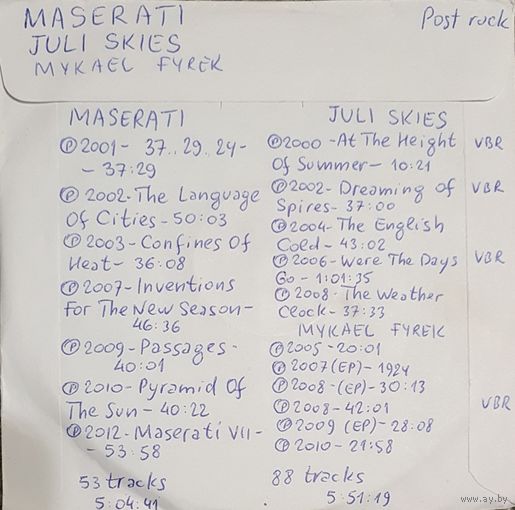 MASERATI
Post rock
JULI SKIES
MYKAEL FYREK
MASERATI
Ⓟ2001- 37..29..24-
- 37:29
Ⓟ 2002-The Language
Of Cities-50:03
Ⓟ 2003-Confines Of
Heat- 36:08
Ⓟ2007-Inventions
For The New Season-
46:36
Ⓟ2009-Passages-
40:01
Ⓟ2010-Pyramid Of
The Sun-40:22
Ⓟ2012-Maserati VII-
- 53:58
53 tracks
5:04:41
JULI SKIES
Ⓟ2000-At The Height VBR
Of Summer-10:21
Ⓟ2002-Dreaming of VBR
Spires-37:00
Ⓟ2004-The English
Cold-43:02
Ⓟ2006-Were The Days VBR
Go-1:01:35
Ⓟ2008-The Weather
Clock-37:33
MYKAEL FYREK
Ⓟ2005-20:01
Ⓟ2007(EP)-1924
Ⓟ2008-(EP)-30:13
Ⓟ2008-42:01 VBR
Ⓟ2009 (EP)-28:08
Ⓟ2010-21:58
88 tracks
5:51:19
www.ay.by